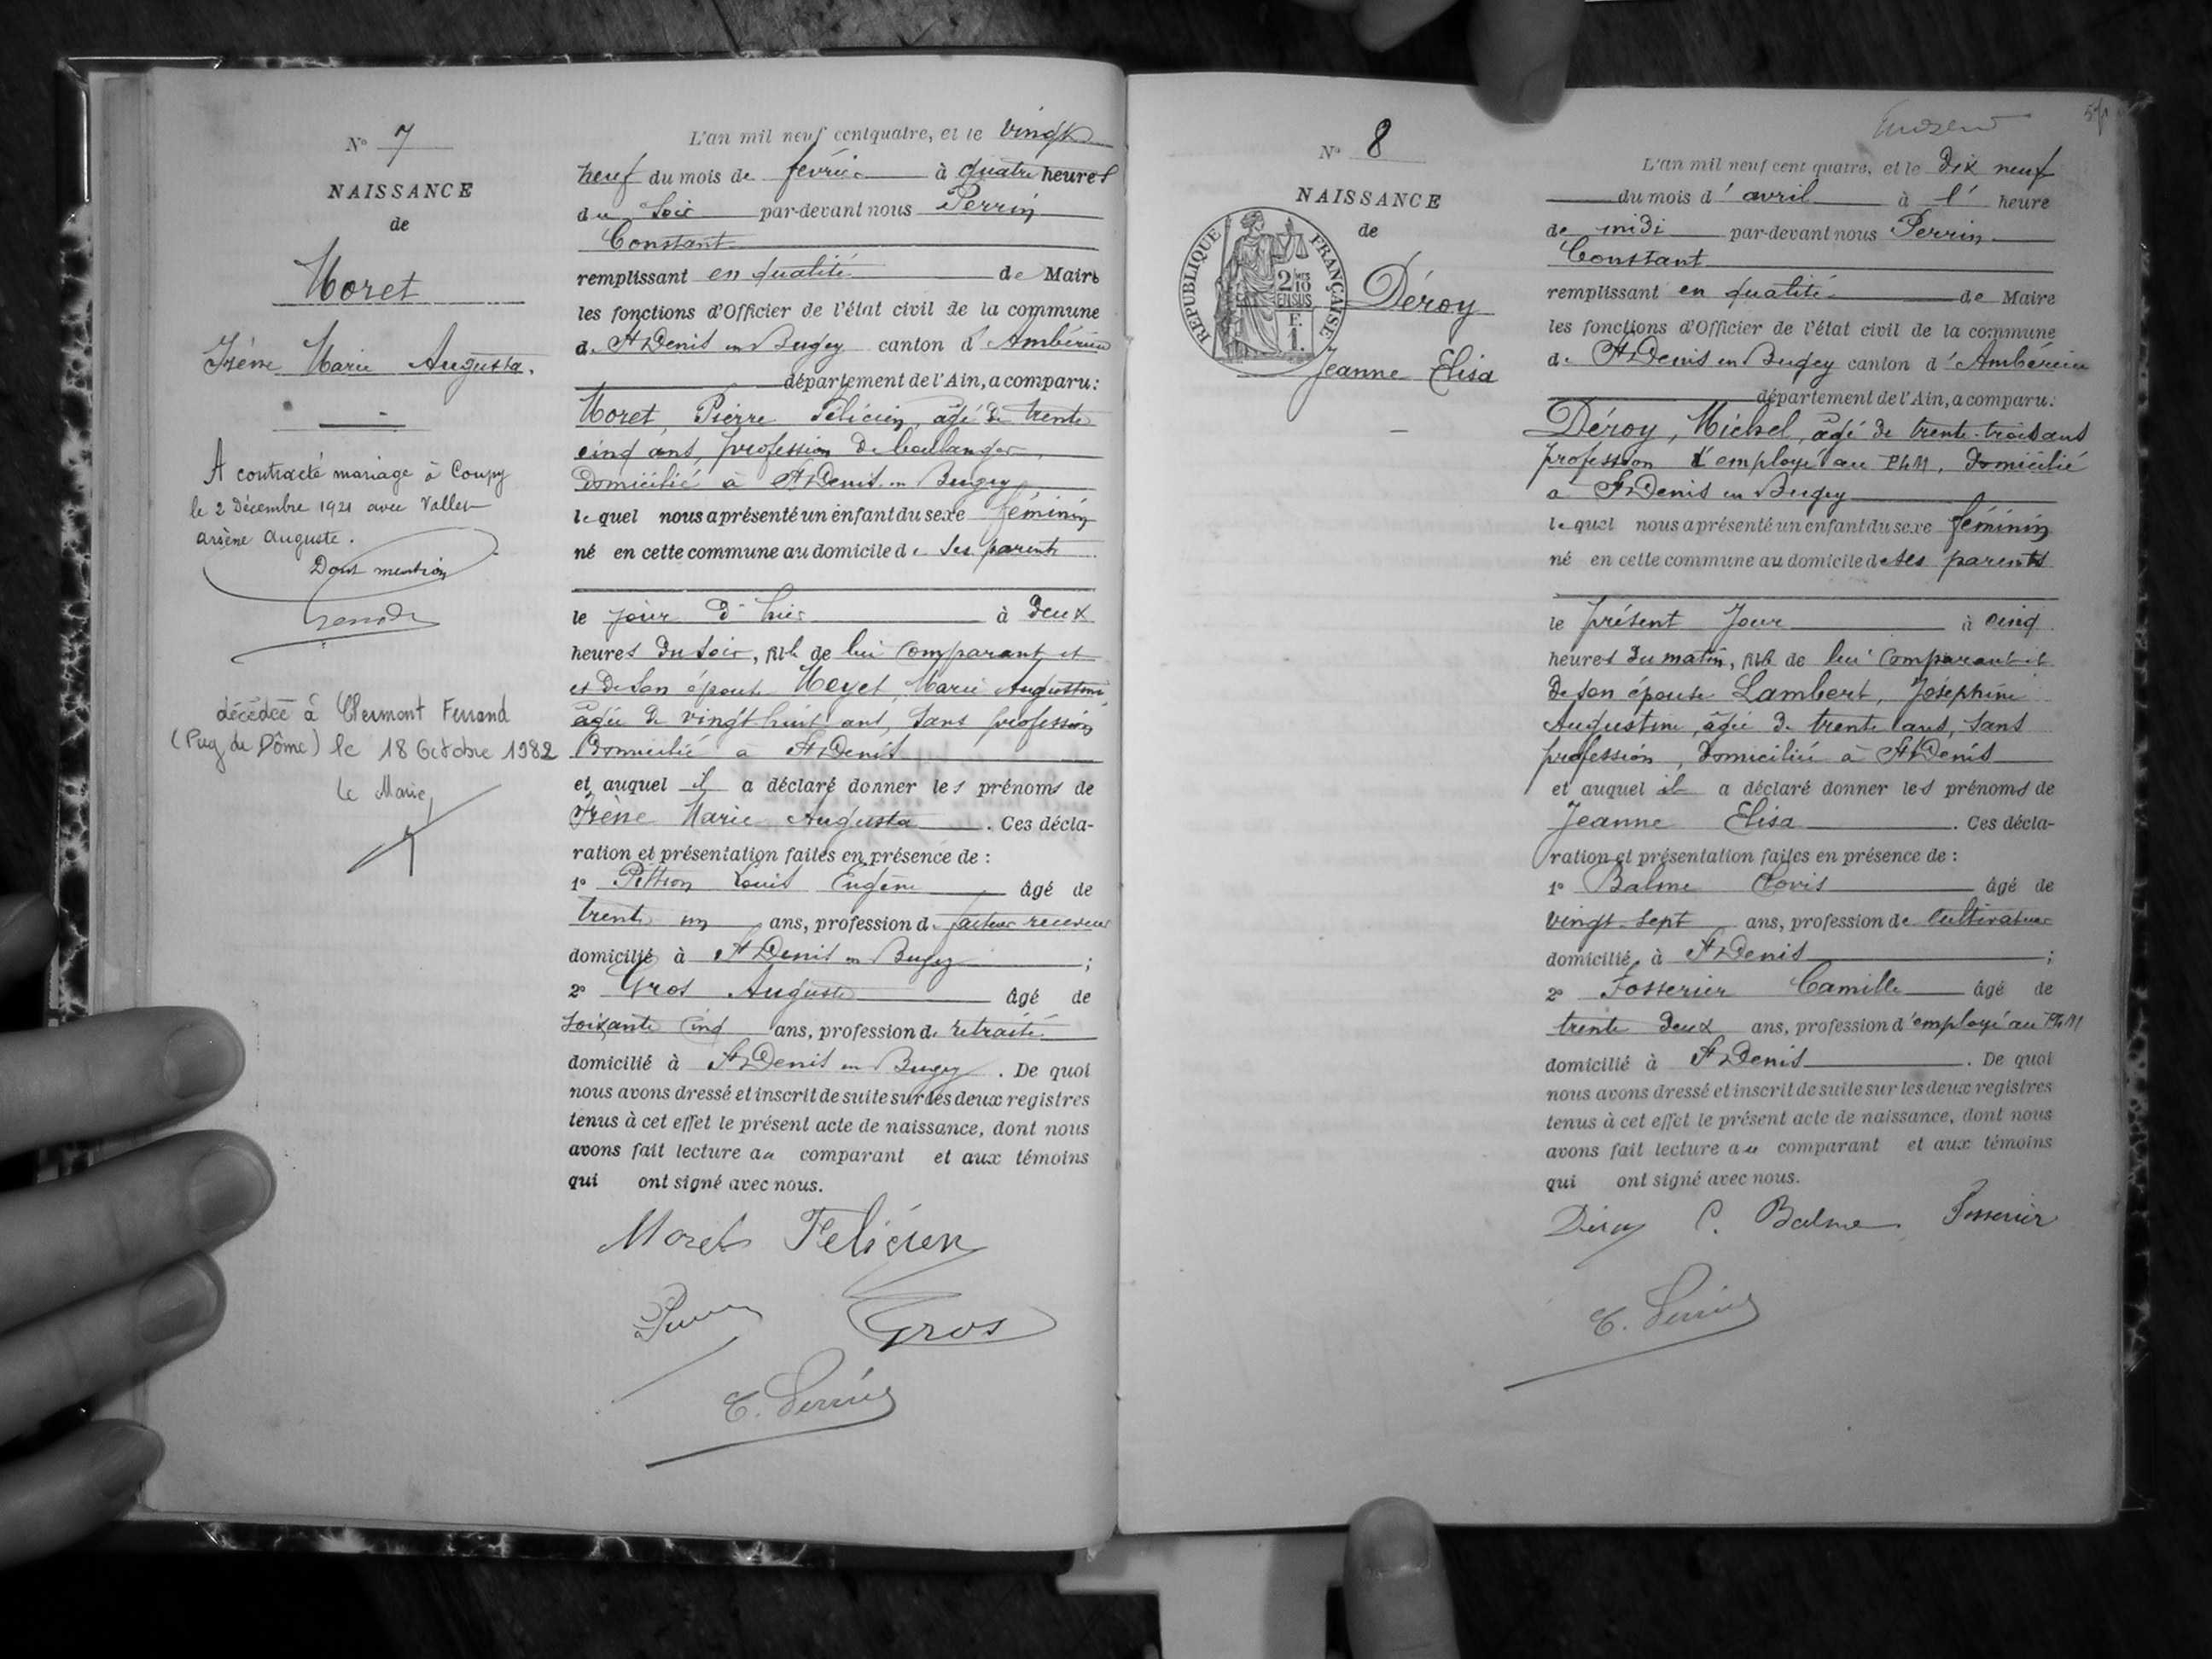 N° 7
NAISSANCE
de
Moret
Irène Marie Augusta.
A contracté mariage à Coupy
le 2 Décembre 1921 avec Vallet
arsène auguste.
Dont mention
décédée à Clermont Ferrand
(Puy de Dôme) le 18 Octobre 1982
le Maire,
L'an mil neuf cent quatre, et le vingt
neuf du mois de février à quatre heures
du soir par-devant nous Perrin
Constant
remplissant en qualité de Maire
les fonctions d'Officier de l'état civil de la commune
de St Denis en Bugey canton d'Ambérieu
département de l'Ain, a comparu:
Moret, Pierre Félicien, âgé de trente
cinq ans, profession de boulanger,
domicilié à St Denis en Bugey
lequel nous a présenté un enfant du sexe féminin
né en cette commune au domicile de ses parents
le jour d'hier à deux
heures du soir, fille de lui comparant et
et de son épouse Meyet, Marie Augustine
âgée de vingt huit ans, sans profession
domiciliée à St Denis
et auquel il a déclaré donner les prénoms de
Irène Marie Augusta. Ces décla-
ration et présentation faites en présence de :
1° Louis Eugène âgé de
trente un ans, profession de facteur receveur
domicilié à St Denis en Bugey ;
2° Gros Auguste âgé de
soixante cinq ans, profession de retraité
domicilié à St Denis en Bugey. De quoi
nous avons dressé et inscrit de suite sur les deux registres
tenus à cet effet le présent acte de naissance, dont nous
avons fait lecture au comparant et aux témoins
qui ont signé avec nous.
Moret Félicien
Gros
C. Perrin
N° 8
NAISSANCE
de
REPUBLIQUE FRANÇAISE
2/10
EN SUS
F.
1.
Déroy
Jeanne Elisa
L'an mil neuf cent quatre, et le dix neuf
du mois d'avril à l' heure
de midi par-devant nous Perrin
Constant
remplissant en qualité de Maire
les fonctions d'Officier de l'état civil de la commune
de St Denis en Bugey canton d'Ambérieu
département de l'Ain, a comparu:
Déroy, Michel, âgé de trente-trois ans
profession d'employé au PLM, domicilié
à St Denis en Bugey
lequel nous a présenté un enfant du sexe féminin
né en cette commune au domicile de ses parents
le présent jour à cinq
heures du matin, fille de lui comparant et
de son épouse Lambert, Joséphine
Augustine, âgée de trente ans, sans
profession, domiciliée à St Denis
et auquel il a déclaré donner les prénoms de
Jeanne Elisa. Ces décla-
ration et présentation faites en présence de :
1° Balme Clovis âgé de
vingt-sept ans, profession de cultivateur
domicilié à St Denis ;
2° Fosserier Camille âgé de
trente deux ans, profession d'employé au PLM
domicilié à St Denis. De quoi
nous avons dressé et inscrit de suite sur les deux registres
tenus à cet effet le présent acte de naissance, dont nous
avons fait lecture au comparant et aux témoins
qui ont signé avec nous.
Déroy C. Balme Fosserier
C. Perrin